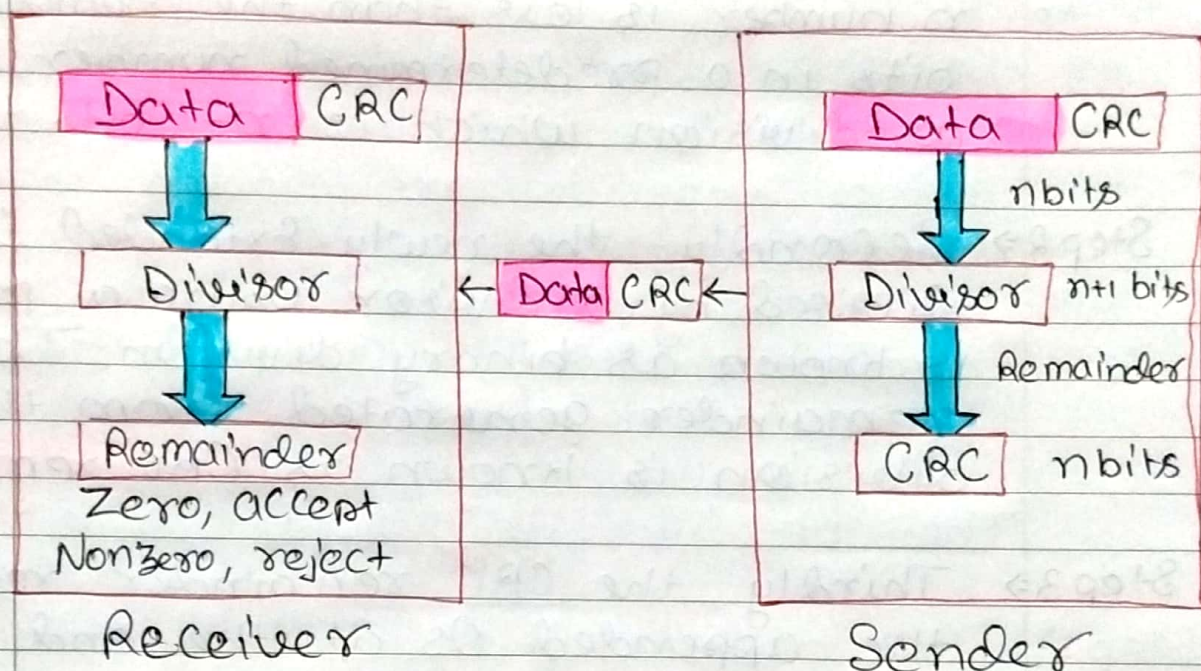 Data CRC
Divisor
Remainder
Zero, accept
Nonzero, reject
Receiver
Data CRC
Data CRC
n bits
Divisor n+1 bits
Remainder
CRC n bits
Sender